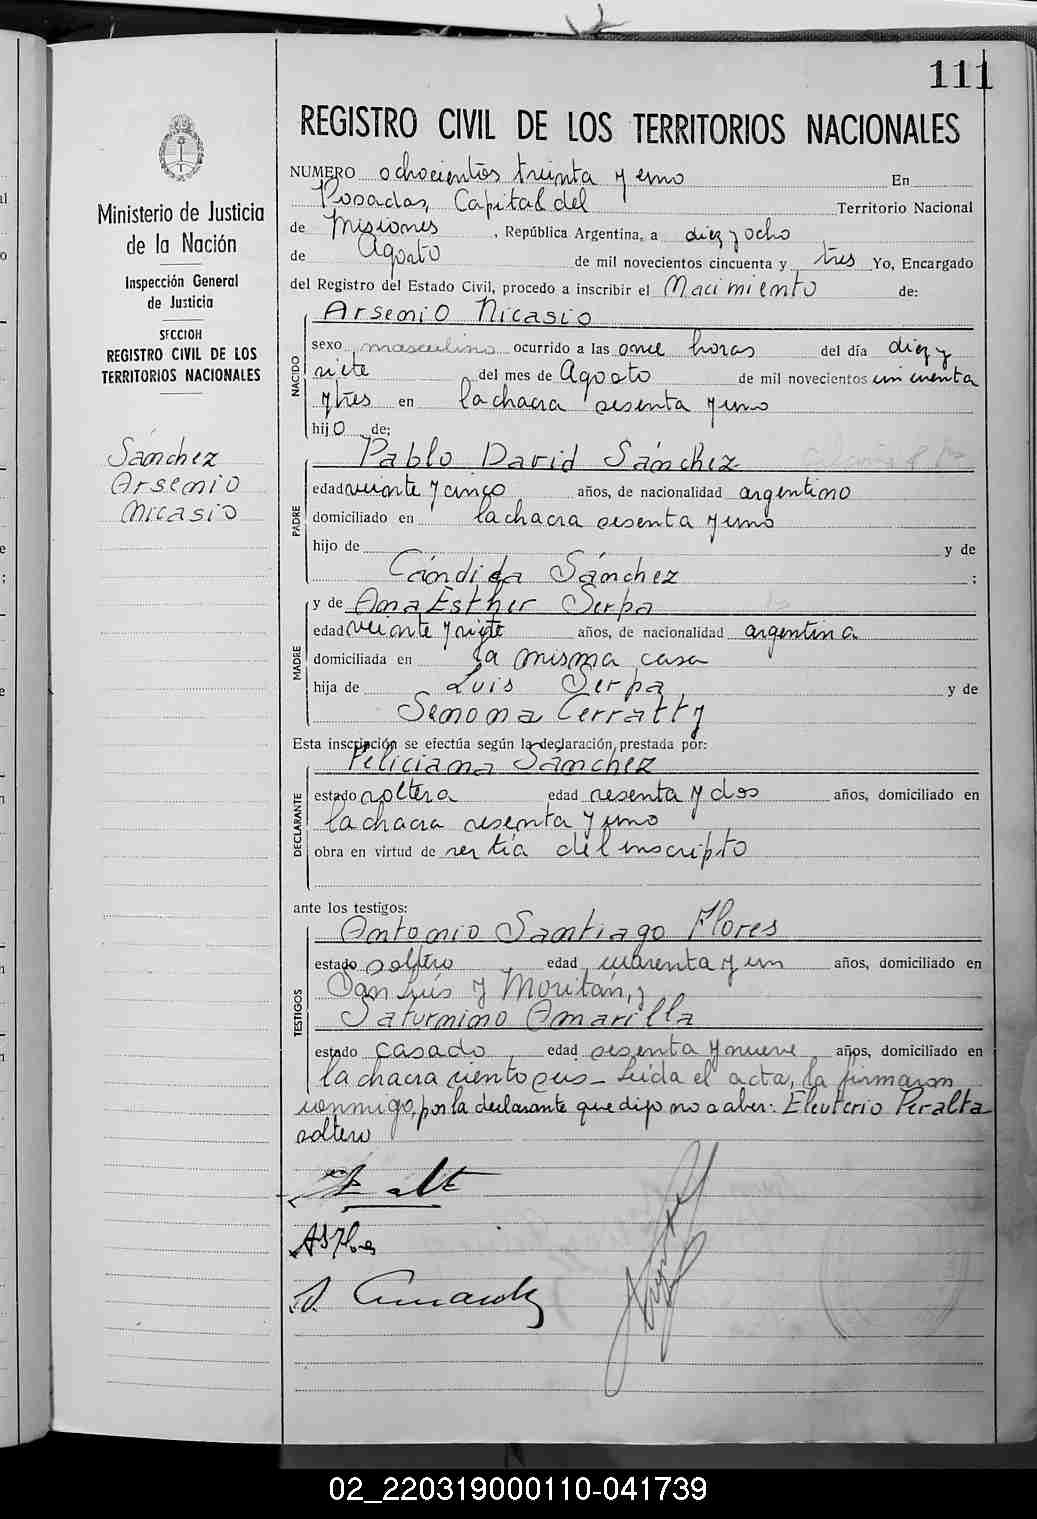 111
REGISTRO CIVIL DE LOS TERRITORIOS NACIONALES
Ministerio de Justicia
de la Nación
Inspección General
de Justicia
SECCION
REGISTRO CIVIL DE LOS
TERRITORIOS NACIONALES
Sánchez
Arsenio
Nicasio
NUMERO ochocientos treinta y uno En
Posadas, Capital del Territorio Nacional
de Misiones, República Argentina, a diez y ocho
de Agosto de mil novecientos cincuenta y tres Yo, Encargado
del Registro del Estado Civil, procedo a inscribir el Nacimiento de:
Arsenio Nicasio
NACIDO
sexo masculino ocurrido a las once horas del día diez y
siete del mes de Agosto de mil novecientos cincuenta
y tres en la chacra sesenta y uno
hijo de:
Pablo David Sánchez
PADRE
edad veinte y cinco años, de nacionalidad argentino
domiciliado en la chacra sesenta y uno
hijo de y de
Cándida Sánchez ;
y de Ana Esther Serpa
MADRE
edad veinte y siete años, de nacionalidad argentina
domiciliada en la misma casa
hija de Luis Serpa y de
Senona Cerratty
Esta inscripción se efectúa según la declaración prestada por:
Feliciana Sánchez
DECLARANTE
estado soltera edad sesenta y dos años, domiciliado en
la chacra sesenta y uno
obra en virtud de ser tía del inscripto
ante los testigos:
Antonio Santiago Flores
TESTIGOS
estado soltero edad cuarenta y un años, domiciliado en
San Luis y Moritán, y
Saturnino Amarilla
estado casado, edad sesenta y nueve años, domiciliado en
la chacra ciento seis - Leída el acta, la firmaron
conmigo, por la declarante que dijo no saber: Eleuterio Peralta
soltero
AS Flores
02_220319000110-041739